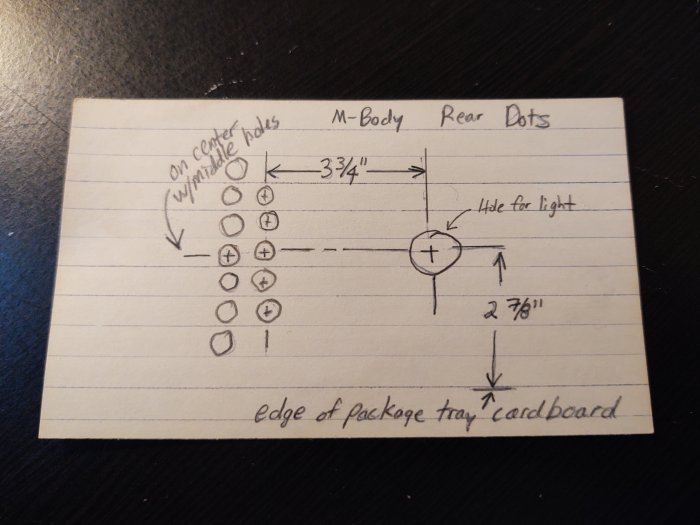 M-Body Rear Dots
on center
w/middle holes
3 3/4"
Hole for light
2 7/8"
edge of package tray cardboard